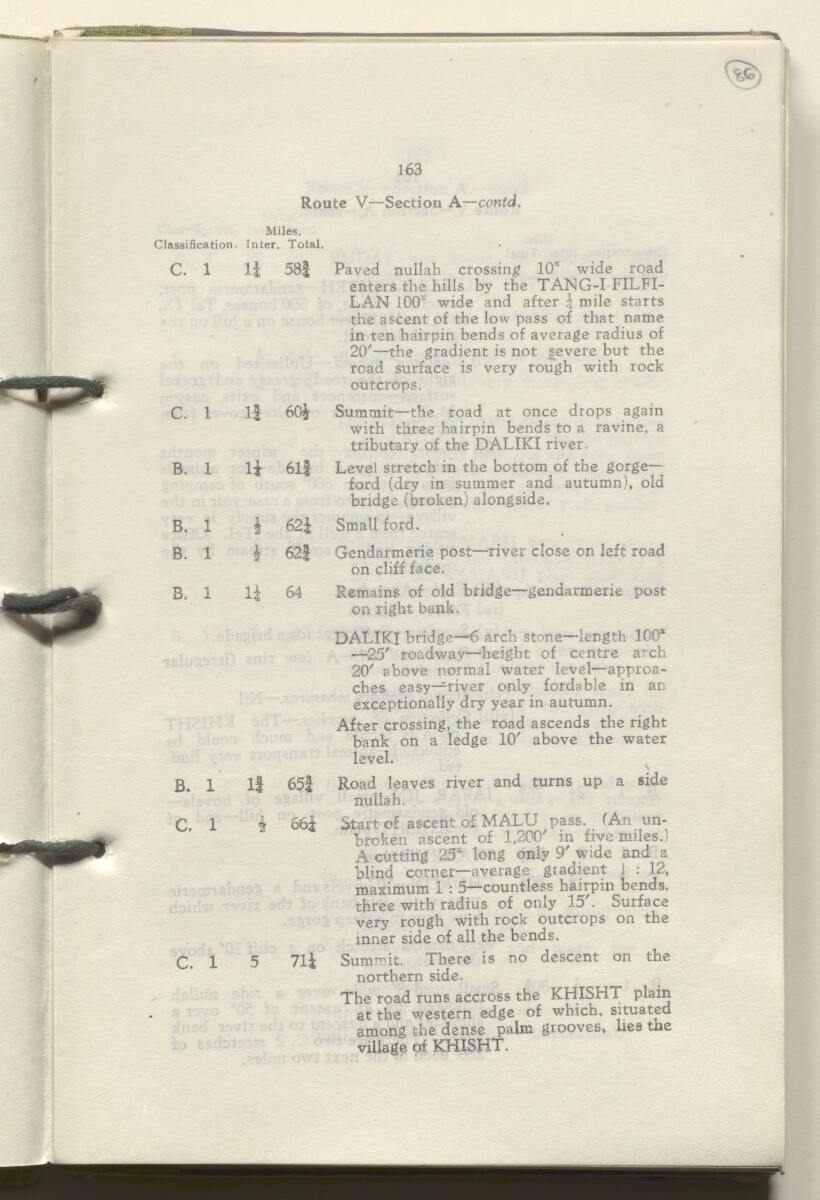 86
163
Route V—Section A—contd.
Miles.
Classification. Inter. Total.
C. 1 1¼ 58¾ Paved nullah crossing 10ˣ wide road
enters the hills by the TANG-I-FILFI-
LAN 100ˣ wide and after ¼ mile starts
the ascent of the low pass of that name
in ten hairpin bends of average radius of
20′—the gradient is not severe but the
road surface is very rough with rock
outcrops.
C. 1 1¾ 60½ Summit—the road at once drops again
with three hairpin bends to a ravine, a
tributary of the DALIKI river.
B. 1 1¼ 61¾ Level stretch in the bottom of the gorge—
ford (dry in summer and autumn), old
bridge (broken) alongside.
B. 1 ½ 62¼ Small ford.
B. 1 ½ 62¾ Gendarmerie post—river close on left road
on cliff face.
B. 1 1¼ 64 Remains of old bridge—gendarmerie post
on right bank.
DALIKI bridge—6 arch stone—length 100ˣ
—25′ roadway—height of centre arch
20′ above normal water level—approa-
ches easy—river only fordable in an
exceptionally dry year in autumn.
After crossing, the road ascends the right
bank on a ledge 10′ above the water
level.
B. 1 1¾ 65¾ Road leaves river and turns up a side
nullah.
C. 1 ½ 66¼ Start of ascent of MALU pass. (An un-
broken ascent of 1,200′ in five miles.)
A cutting 25ˣ long only 9′ wide and a
blind corner—average gradient 1 : 12,
maximum 1 : 5—countless hairpin bends,
three with radius of only 15′. Surface
very rough with rock outcrops on the
inner side of all the bends.
C. 1 5 71¼ Summit. There is no descent on the
northern side.
The road runs accross the KHISHT plain
at the western edge of which, situated
among the dense palm grooves, lies the
village of KHISHT.